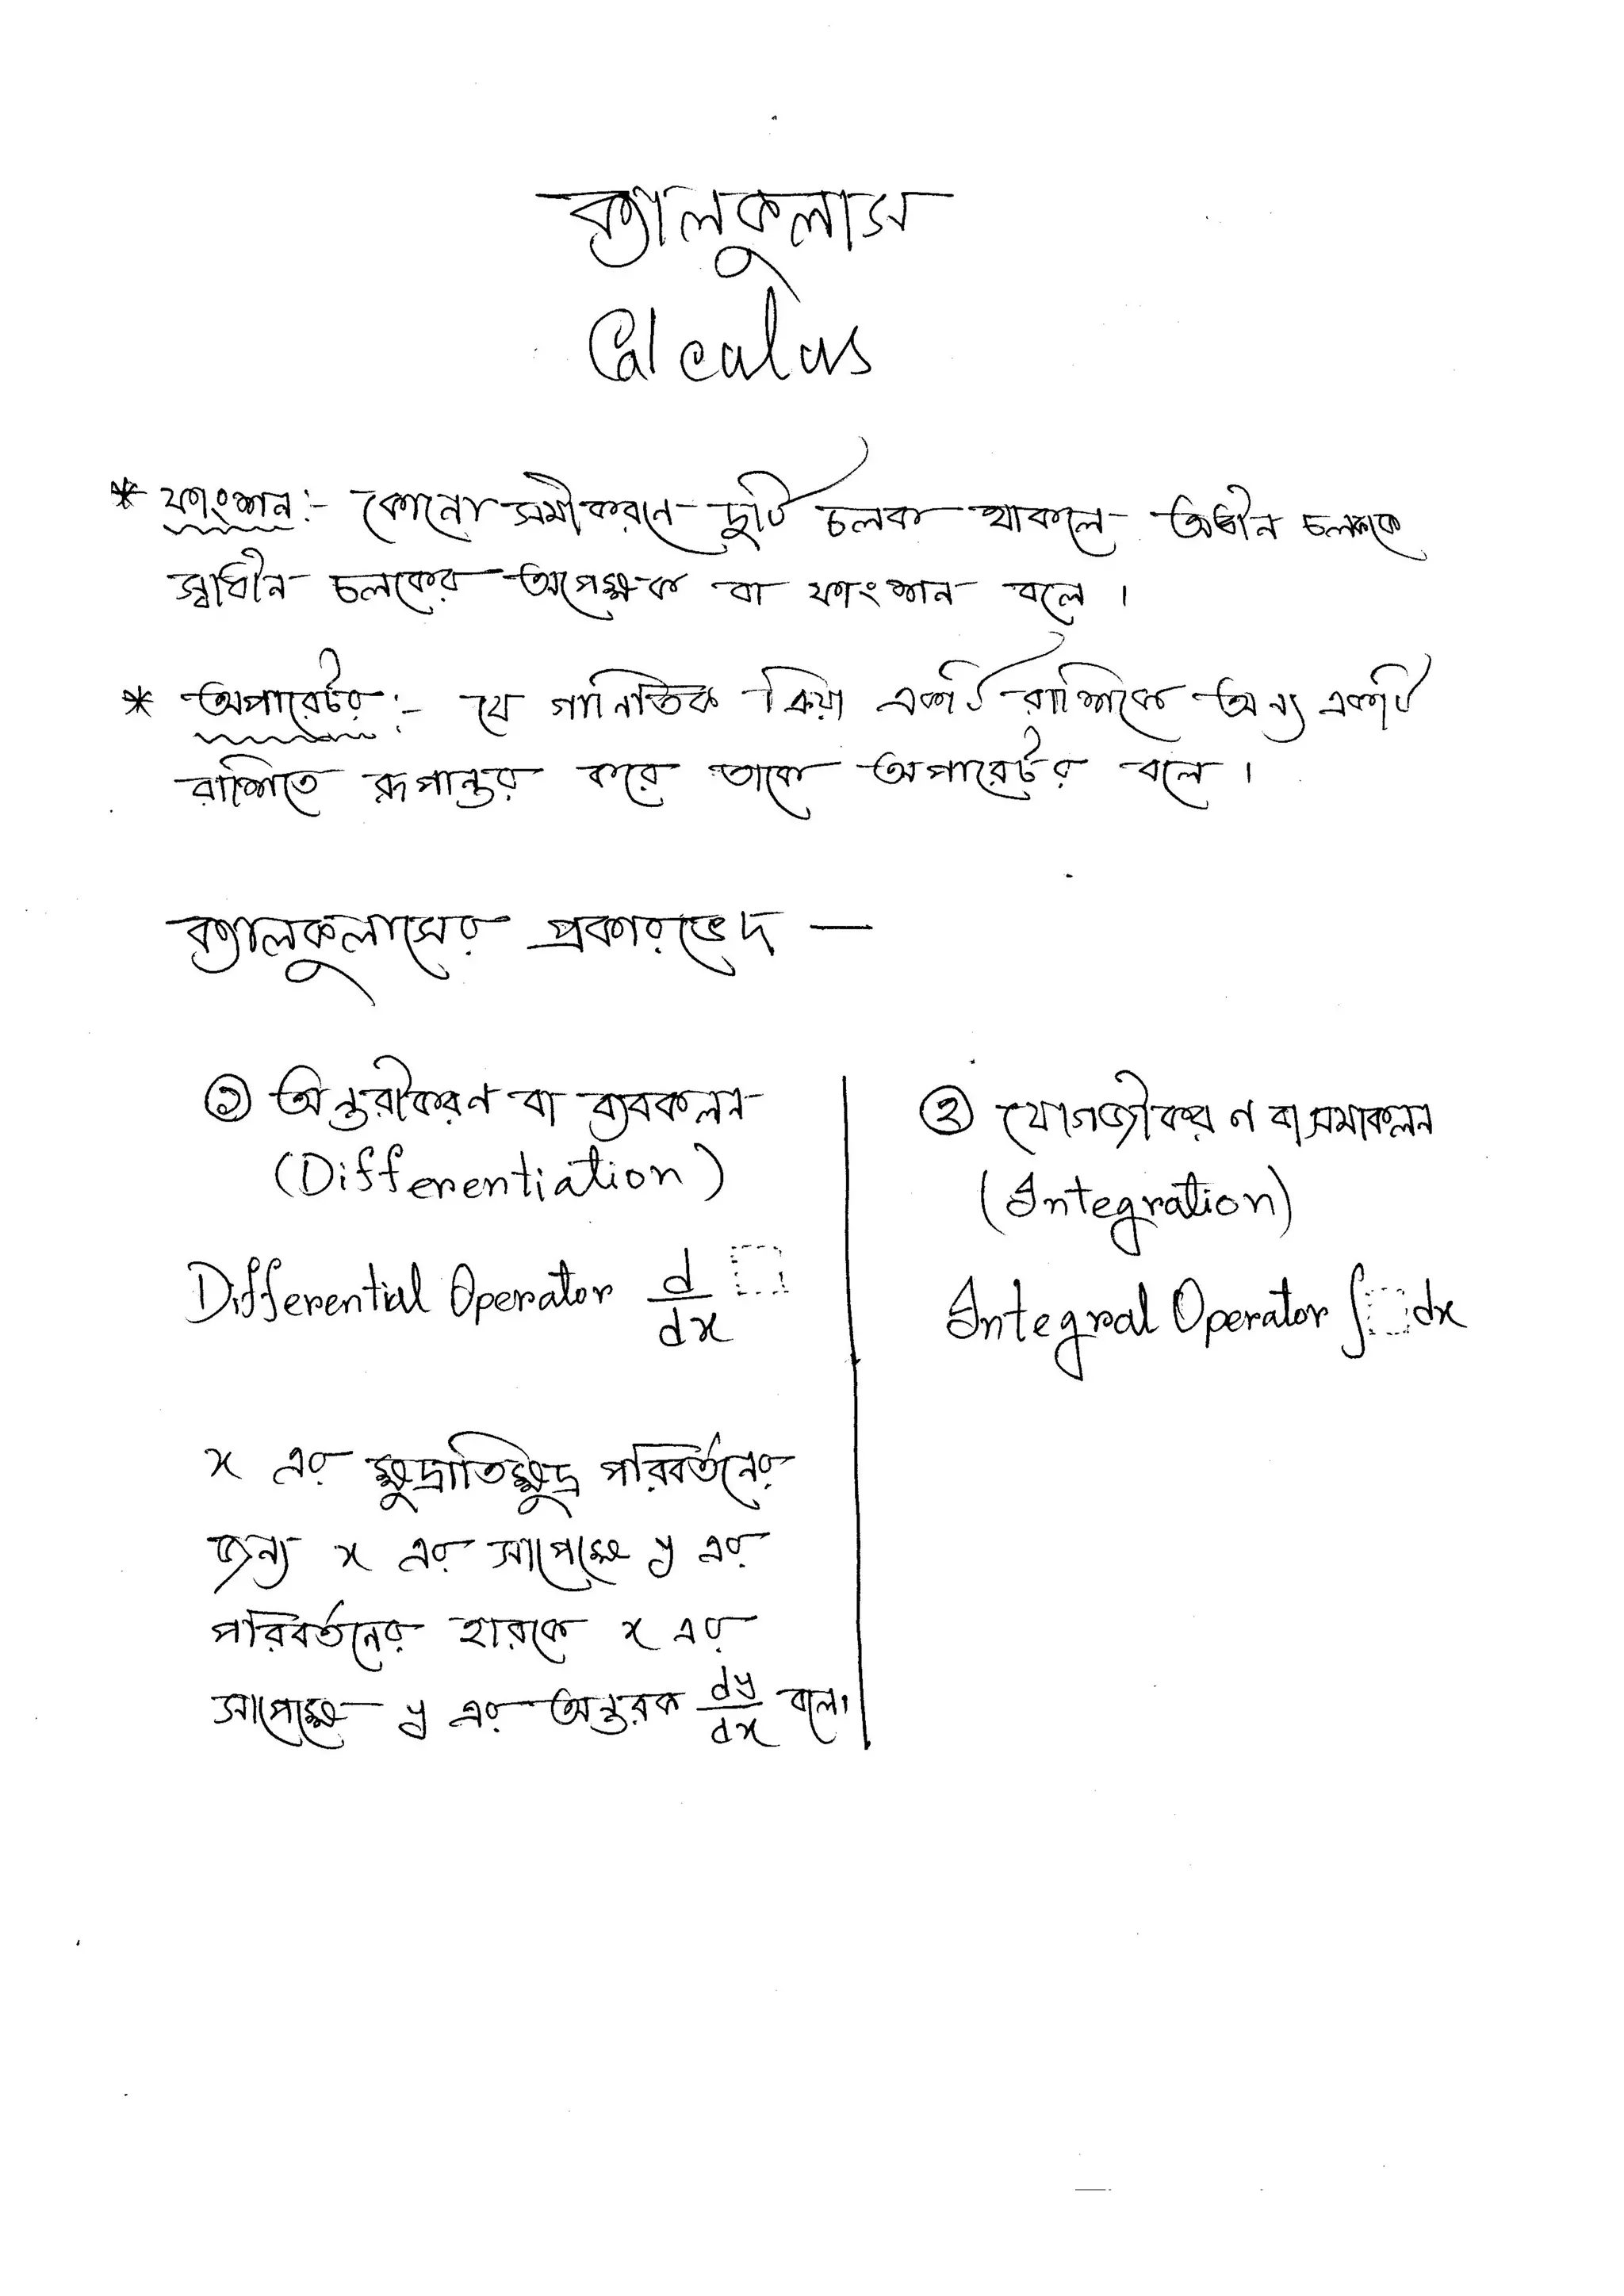 ক্যালকুলাস
Calculus
* ফাংশন:- কোনো সমীকরণে দুটি চলক থাকলে অধীন চলককে
স্বাধীন চলকের অপেক্ষক বা ফাংশন বলে ।
* অপারেটর:- যে গানিতিক ক্রিয়া একটি রাশিকে অন্য একটি
রাশিতে রূপান্তর করে তাকে অপারেটর বলে ।
ক্যালকুলাসের প্রকারভেদ —
① অন্তরীকরণ বা ব্যবকলন
(Differentiation)
Differential Operator d/dx □
x এর ক্ষুদ্রাতিক্ষুদ্র পরিবর্তনের
জন্য x এর সাপেক্ষে y এর
পরিবর্তনের হারকে x এর
সাপেক্ষে y এর অন্তরক dy/dx বলে।
② যোগজীকরণ বা সমাকলন
(Integration)
Integral Operator ∫□dx